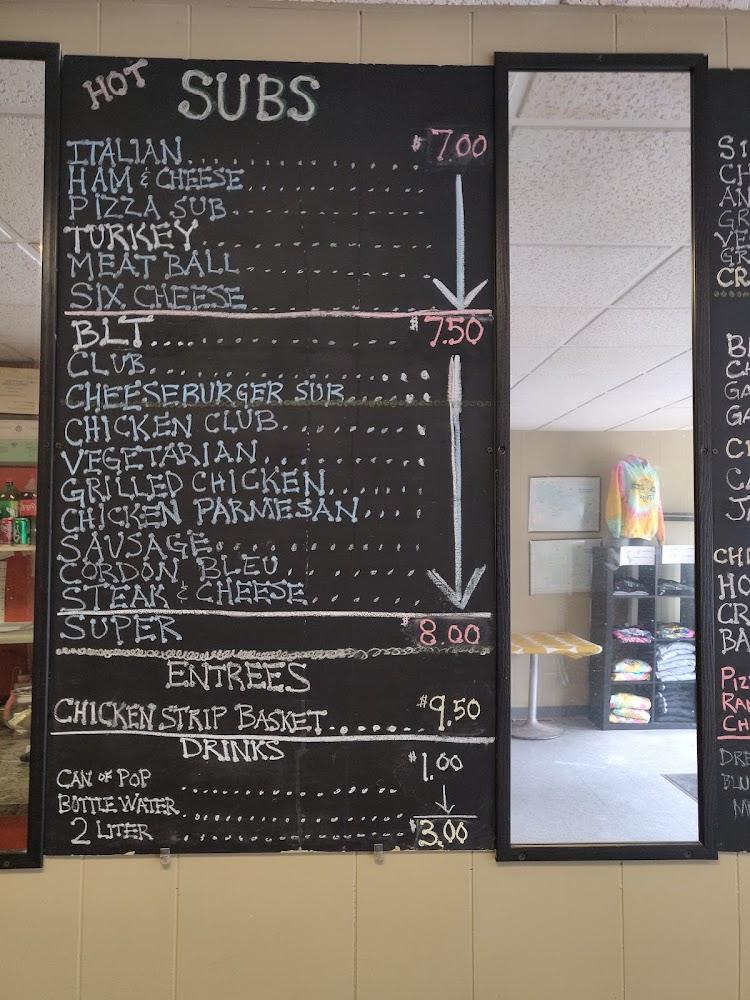 HOT SUBS
ITALIAN........... $7.00
HAM & CHEESE...........
PIZZA SUB...........
TURKEY...........
MEAT BALL...........
SIX CHEESE...........
BLT........... $7.50
CLUB...........
CHEESEBURGER SUB...........
CHICKEN CLUB...........
VEGETARIAN...........
GRILLED CHICKEN...........
CHICKEN PARMESAN...........
SAUSAGE...........
CORDON BLEU...........
STEAK & CHEESE...........
SUPER $8.00
ENTREES
CHICKEN STRIP BASKET..... $9.50
DRINKS
CAN OF POP ........... $1.00
BOTTLE WATER ...........
2 LITER ........... $3.00